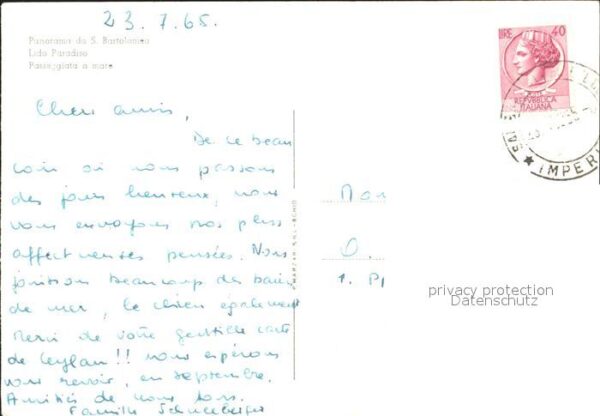 23.7.65.
Panorama da S. Bartolomeo
Lido Paradiso
Passeggiata a mare
LIRE 40
REPVBBLICA
ITALIANA
IMPERI
Chers amis,
De ce beau
coin où nous passons
des jours heureux, nous
vous envoyons nos plus
affectueuses pensées. Nous
jouissons beaucoup des bains
de mer, le chien également
Merci de votre gentille carte
de Ceylan!! nous espérons
vous revoir, en septembre.
Amitiés de nous tous.
Famille Schneeberger
Mon
O.
1. Pl
privacy protection
Datenschutz